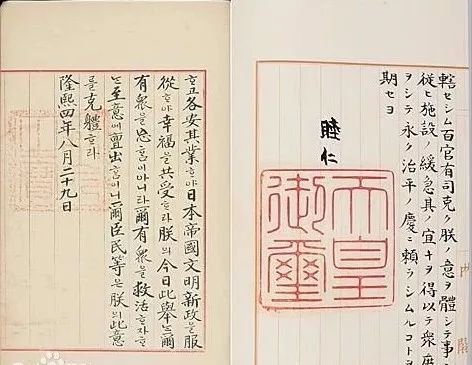 ᄒᆞ고各安其業ᄒᆞ야日本帝國文明新政을服
從ᄒᆞ야幸福을共受ᄒᆞ라朕의今日此擧ᄂᆞᆫ爾
有衆을忘홈이아니라爾有衆을救活ᄒᆞ쟈ᄒᆞ
ᄂᆞᆫ至意에亶出홈이니爾臣民等은朕의此意
를克體ᄒᆞ라
隆熙四年八月二十九日
轄セシム百官有司克ク朕ノ意ヲ體シテ事
從ヒ施設ノ緩急其ノ宜キヲ得以テ衆庶
ヲシテ永ク治平ノ慶ニ賴ラシムルコトヲ
期セヨ
睦仁
天皇
御璽